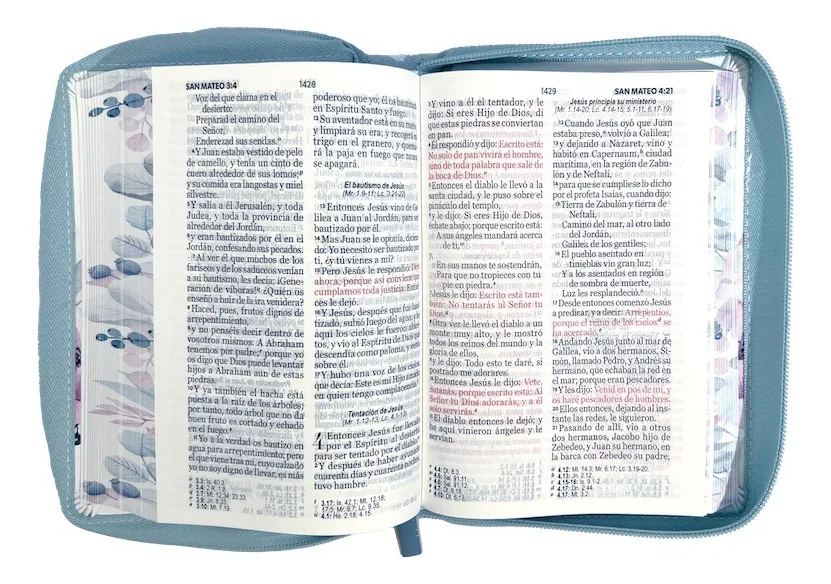 SAN MATEO 3:4
1428
Voz del que clama en el
desierto:
Preparad el camino del
Señor,
Enderezad sus sendas.
4 Y Juan estaba vestido de pelo
de camello, y tenía un cinto de
cuero alrededor de sus lomos;
y su comida era langostas y miel
silvestre.
5 Y salía a él Jerusalén, y toda
Judea, y toda la provincia de
alrededor del Jordán,
6 y eran bautizados por él en el
Jordán, confesando sus pecados.
7 Al ver él que muchos de los
fariseos y de los saduceos venían
a su bautismo, les decía: ¡Gene-
ración de víboras! ¿Quién os
enseñó a huir de la ira venidera?
8 Haced, pues, frutos dignos de
arrepentimiento,
9 y no penséis decir dentro de
vosotros mismos: A Abraham
tenemos por padre; porque yo
os digo que Dios puede levantar
hijos a Abraham aun de estas
piedras.
10 Y ya también el hacha está
puesta a la raíz de los árboles;
por tanto, todo árbol que no da
buen fruto es cortado y echado
en el fuego.
11 Yo a la verdad os bautizo en
agua para arrepentimiento; pero
el que viene tras mí, cuyo calzado
yo no soy digno de llevar, es más
3.3: Is. 40.3
3.4: 2 R. 1.8
3.7: Mt. 12.34; 23.33
3.9: Jn. 8.33
3.10: Mt. 7.19.
poderoso que yo; él os bautiza
en Espíritu Santo y fuego.
12 Su aventador está en su mano,
y limpiará su era; y recogerá
trigo en el granero, y quema-
rá la paja en fuego que nunca
se apagará.
El bautismo de Jesús
(Mr. 1.9-11; Lc. 3.21-22)
13 Entonces Jesús vino de
lilea a Juan al Jordán, para ser
bautizado por él.
14 Mas Juan se le oponía, dicien-
do: Yo necesito ser bautizado
ti, ¿y tú vienes a mí?
15 Pero Jesús le respondió: Deja
ahora, porque así conviene que
cumplamos toda justicia. Enton-
ces le dejó.
16 Y Jesús, después que fue bau-
tizado, subió luego del agua; y
aquí los cielos le fueron abier-
tos, y vio al Espíritu de Dios que
descendía como paloma, y
sobre él.
17 Y hubo una voz de los cielos,
que decía: Este es mi Hijo amado,
en quien tengo complacencia.
Tentación de Jesús
(Mr. 1.12-13; Lc. 4.1-13)
4 Entonces Jesús fue llevado
por el Espíritu al desierto,
para ser tentado por el diablo.
2 Y después de haber ayunado
cuarenta días y cuarenta noches,
tuvo hambre.
3.17: Is. 42.1; Mt. 12.18;
17.5; Mr. 9.7; Lc. 9.35.
4.1: He. 2.18; 4.15.
1429
SAN MATEO 4:21
3 Y vino a él el tentador, y le
dijo: Si eres Hijo de Dios, di
que estas piedras se conviertan
en pan.
4 Él respondió y dijo: Escrito está:
No solo de pan vivirá el hombre,
sino de toda palabra que sale de
la boca de Dios.
5 Entonces el diablo le llevó a la
santa ciudad, y le puso sobre el
pináculo del templo,
6 y le dijo: Si eres Hijo de Dios,
échate abajo; porque escrito está:
A sus ángeles mandará acerca
de ti,
y,
En sus manos te sostendrán,
Para que no tropieces con tu
pie en piedra.
7 Jesús le dijo: Escrito está tam-
bién: No tentarás al Señor tu
Dios.
8 Otra vez le llevó el diablo a un
monte muy alto, y le mostró
todos los reinos del mundo y la
gloria de ellos,
9 y le dijo: Todo esto te daré, si
postrado me adorares.
10 Entonces Jesús le dijo: Vete,
Satanás, porque escrito está: Al
Señor tu Dios adorarás, y a él
solo servirás.
11 El diablo entonces le dejó; y
he aquí vinieron ángeles y le
servían.
4.4: Dt. 8.3.
4.6: Sal. 91.11.
4.6: Sal. 91.12.
4.7: Dt. 6.16.
4.10: Dt. 6.13.
Jesús principia su ministerio
(Mr. 1.14-20; Lc. 4.14-15; 5.1-11; 6.17-19)
12 Cuando Jesús oyó que Juan
estaba preso, volvió a Galilea;
13 y dejando a Nazaret, vino y
habitó en Capernaum, ciudad
marítima, en la región de Zabu-
lón y de Neftalí,
14 para que se cumpliese lo dicho
por el profeta Isaías, cuando dijo:
15 Tierra de Zabulón y tierra de
Neftalí,
Camino del mar, al otro lado
del Jordán,
Galilea de los gentiles;
16 El pueblo asentado en
tinieblas vio gran luz;
Y a los asentados en región
de sombra de muerte,
Luz les resplandeció.
17 Desde entonces comenzó Jesús
a predicar, y a decir: Arrepentíos,
porque el reino de los cielos se
ha acercado.
18 Andando Jesús junto al mar de
Galilea, vio a dos hermanos, Si-
món, llamado Pedro, y Andrés su
hermano, que echaban la red en
el mar; porque eran pescadores.
19 Y les dijo: Venid en pos de mí, y
os haré pescadores de hombres.
20 Ellos entonces, dejando al ins-
tante las redes, le siguieron.
21 Pasando de allí, vio a otros
dos hermanos, Jacobo hijo de
Zebedeo, y Juan su hermano, en
la barca con Zebedeo su padre,
4.12: Mt. 14.3; Mr. 6.17; Lc. 3.19-20.
4.13: Jn. 2.12.
4.15-16: Is. 9.1-2.
4.17: Dn. 2.44.
4.17: Mt. 3.2.